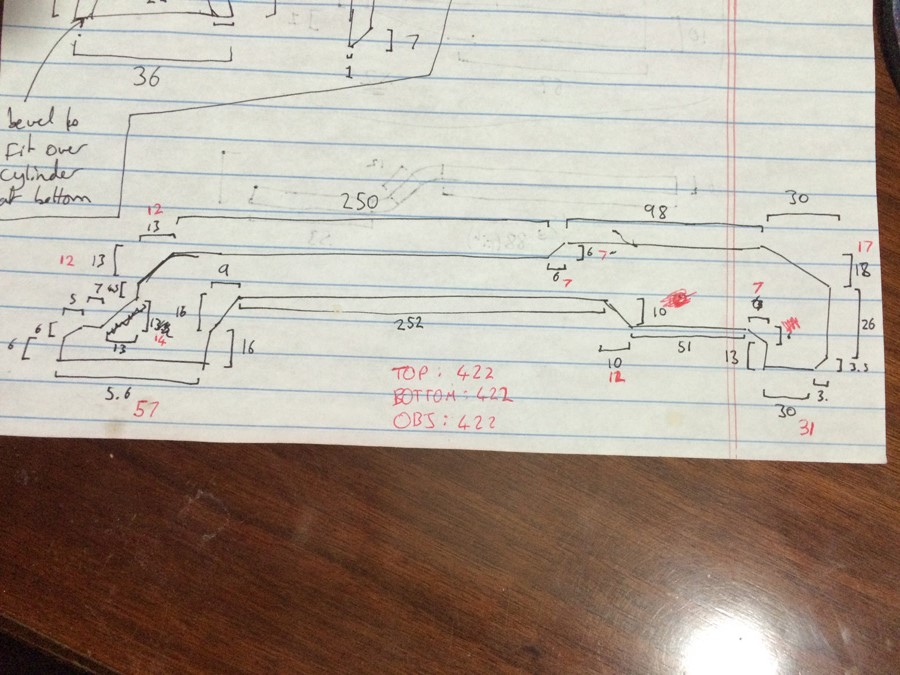 36
1
7
bevel to
fit over
cylinder
at bottom
12
13
250
98
30
12
13
6
7
6
7
17
18
9
5
7
16
10
7
6
6
13
14
13
16
252
10
12
51
13
26
3.5
3.
30
31
5.6
57
TOP: 422
BOTTOM: 422
OBJ: 422